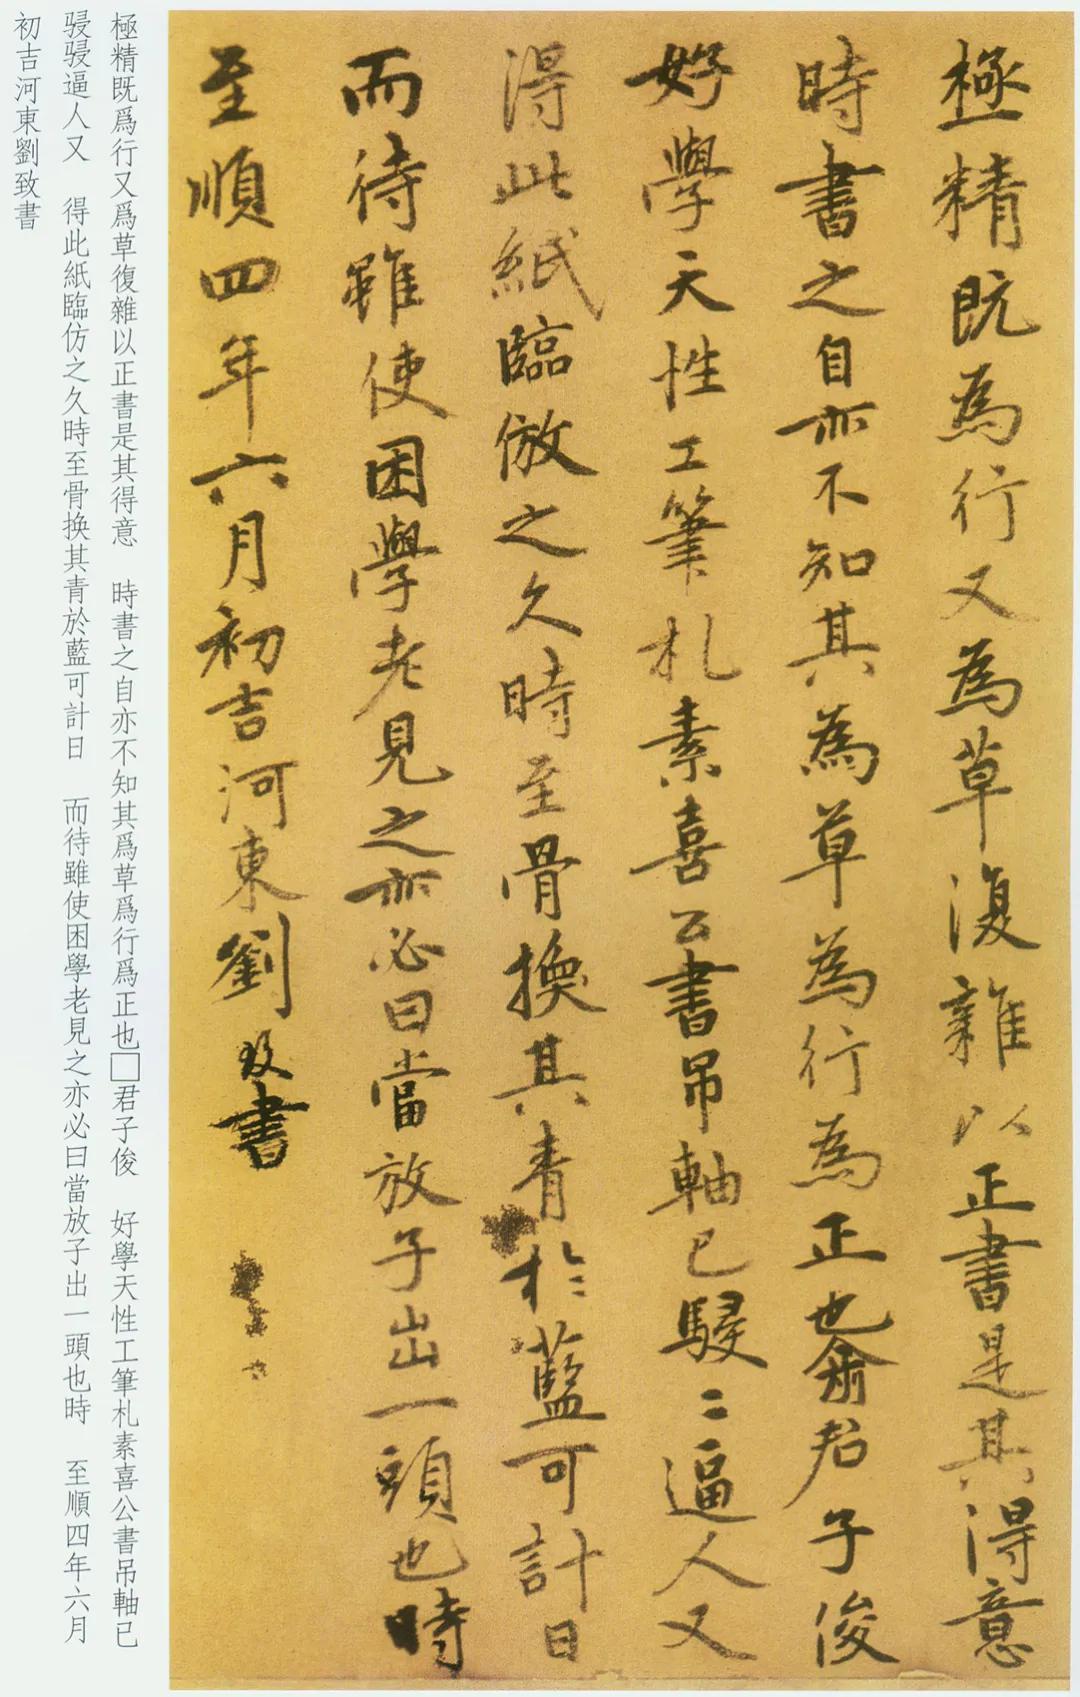 極精既為行又為草復雜以正書是其得意
時書之自亦不知其為草為行為正也君子俊
好學天性工筆札素喜公書吊軸已駸〻逼人又
得此紙臨倣之久時至骨換其青於藍可計日
而待雖使困學老見之亦必曰當放子出一頭也時
至順四年六月初吉河東劉致書
極精既爲行又爲草復雜以正書是其得意　時書之自亦不知其爲草爲行爲正也□君子俊　好學天性工筆札素喜公書吊軸已
駸駸逼人又　得此紙臨仿之久時至骨换其青於藍可計日　而待雖使困學老見之亦必曰當放子出一頭也時　至順四年六月
初吉河東劉致書